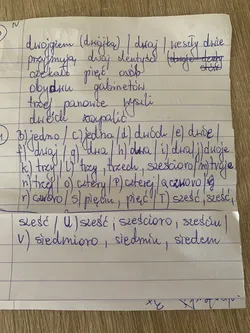 dwojgiem (dwójką) / dwaj / weszły dwie
przyjmują, dwaj dentyści
czekało pięć osób
obydwu gabinetów
trzej panowie wyszli
dwiema
1) b) jedno / c) jedna / d) dwóch / e) dwóje
f) dwaj / g) dwa / h) dwa / i) dwaj / j) dwoje
k) trzy / l) trzy, trzech, sześcioro / m) troje
n) trzej / o) cztery / p) czterej / q) czworo
r) czworo / s) pięciu, pięć / T) sześć, sześć,
sześć / U) sześć, sześcioro, sześciu /
V) siedmioro, siedmiu, siedem